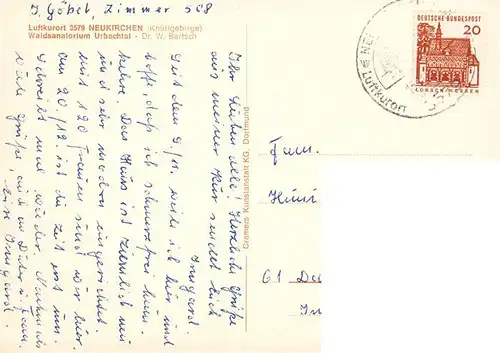 J. Göbel, Zimmer 508
Luftkurort 3579 NEUKIRCHEN (Knüllgebirge)
Waldsanatorium Urbachtal - Dr. W. Bartsch
Ihr Lieben alle! Herzliche Grüße
aus meiner Kur sendet Euch
Irmgard.
Seit dem 9./11. weile ich hier und
hoffe, daß ich schmerzfrei heim
kehre. Das Haus ist ziemlich neu
und sehr modern eingerichtet
mit 120 Frauen sind wir hier.
am 20./12. ist die Zeit erst um.
Schreibt mal wieder. Nochmals
viele Grüße, auch an Dieter u. Fam.
Eure Irmgard.
Cramers Kunstanstalt KG, Dortmund
DEUTSCHE BUNDESPOST
20
LORSCH/HESSEN
Luftkurort
Fam.
Heini
61 Da